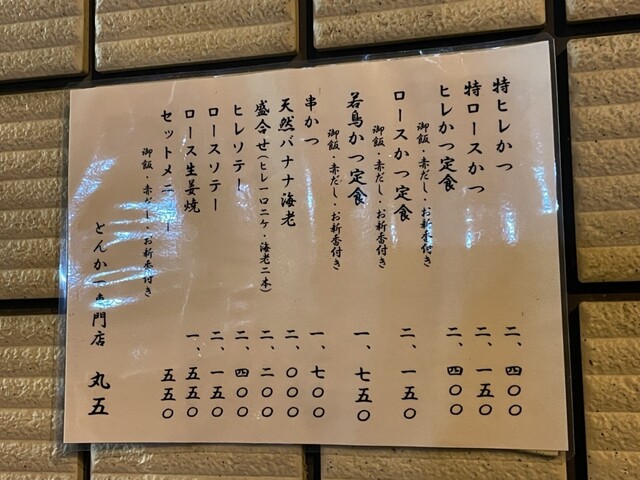 特ヒレかつ 二、四〇〇
特ロースかつ 二、一五〇
ヒレかつ定食 二、四〇〇
御飯・赤だし・お新香付き
ロースかつ定食 二、一五〇
御飯・赤だし・お新香付き
若鳥かつ定食 一、七五〇
御飯・赤だし・お新香付き
串かつ 一、七〇〇
天然バナナ海老 二、〇〇〇
盛合せ(ヒレ一ロ二ケ・海老二本) 二、二〇〇
ヒレソテー 二、四〇〇
ロースソテー 二、一五〇
ロース生姜焼 一、五五〇
セットメニュー 五五〇
御飯・赤だし・お新香付き
とんかつ専門店 丸五